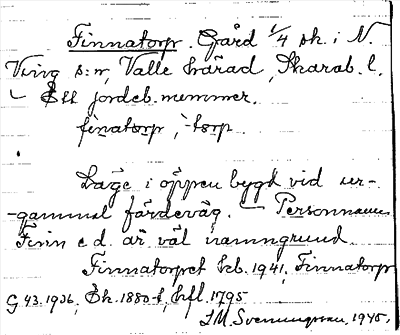 Finnatorp. Gård 1/4 sk. i N.
Ving s:n, Valle härad, Skarab. l.
– Ett jordeb.nummer.
finatorp, -torp
Läge i öppen bygd vid ur-
-gammal färdeväg. – Personnamn
Finn e.d. är väl namngrund.
Finnatorpet hb. 1941, Finnatorp
G 43. 1936, Ek. 1880-t, hfl. 1795
J.M. Svenungsson, 1945.